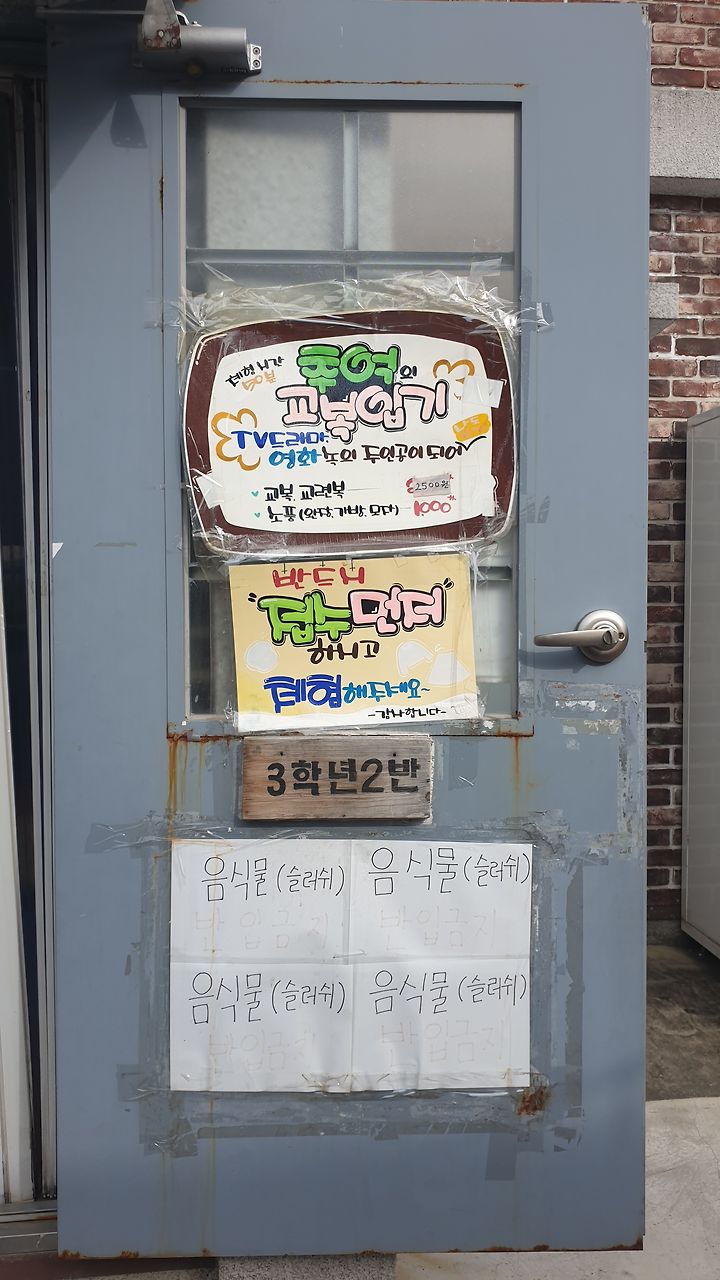 체험시간
추억의
교복입기
TV드라마
영화 속의 주인공이 되어
교복, 교련복 2500원
소품(완장, 가방, 모자) 1000
반드시
"접수먼저"
하시고
체험해주세요~
-감사합니다-
3학년2반
음식물(슬러쉬) 음식물(슬러쉬)
반입금지 반입금지
음식물(슬러쉬) 음식물(슬러쉬)
반입금지 반입금지